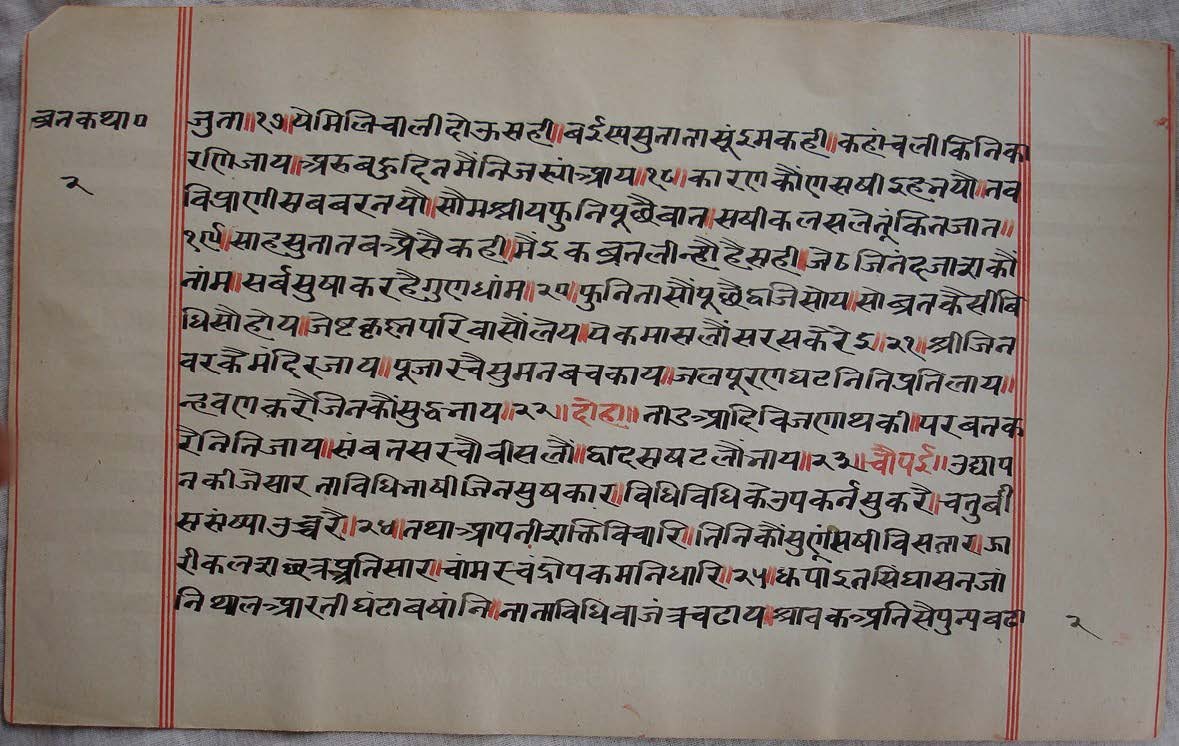 ब्रतकथा०
२
जुता॥१७॥ये मिलि चाली दोऊ सही॥बईस्पसुता तासूं इम कही॥कहां चली किनि का
रणि जाय॥अरु बहु दिन मैं निज स्यां आय॥१८॥कारण कौंण सषी इह नयौ॥तब
विप्राणी सब बरनयौ॥सौमश्रीय फुनि पूछै बात॥सषी कलस ले तूं कित जात॥
१९॥साह सुता तब अैसै कही॥मैं इक ब्रत लीन्हौ है सही॥जेठ जिनंद जात्रा कौ
नांम॥सर्ब सुषाकर है गुणधांम॥२०॥फुनि तासौं पूछै द्वजि सोय॥सो ब्रत कैसी बि
धि सौ होय॥जेष्ट कृष्ण परिवा सौं लेय॥यक मास लौं सरस करेइ॥२१॥श्री जिन
वर कै मंदिर जाय॥पूजा रचै सुमन बच काय॥जल पूरण घट निति प्रति लाय॥
न्हवण करै जिन कौं सुद्ध नाय॥२२॥दोहा॥ताउ आदि विजण थकी॥पर बत क
रै निति जाय॥संबतसर चौबीस लौं॥द्वादस षट लौं नाय॥२३॥चौपई॥उद्याप
न कीजै सार ता विधि भाषी जिन सुषकार॥विधि विधि के उपकर्न सु करै॥चतुबी
स संष्या उच्चरै॥२४॥तथा आपनी शक्ति विचारि॥तिनि कौं सुणूं सषी विसतार॥झा
री कलश छत्र प्रतिसार॥चांमर चंद्रोपक मनि धारि॥२५॥धूपांइत सिंघासन जां
नि थाल आरती घंटा बषांनि॥नाना विधि वाजंत्र चढाय॥श्रावक अति सै पुन्य बढा
२